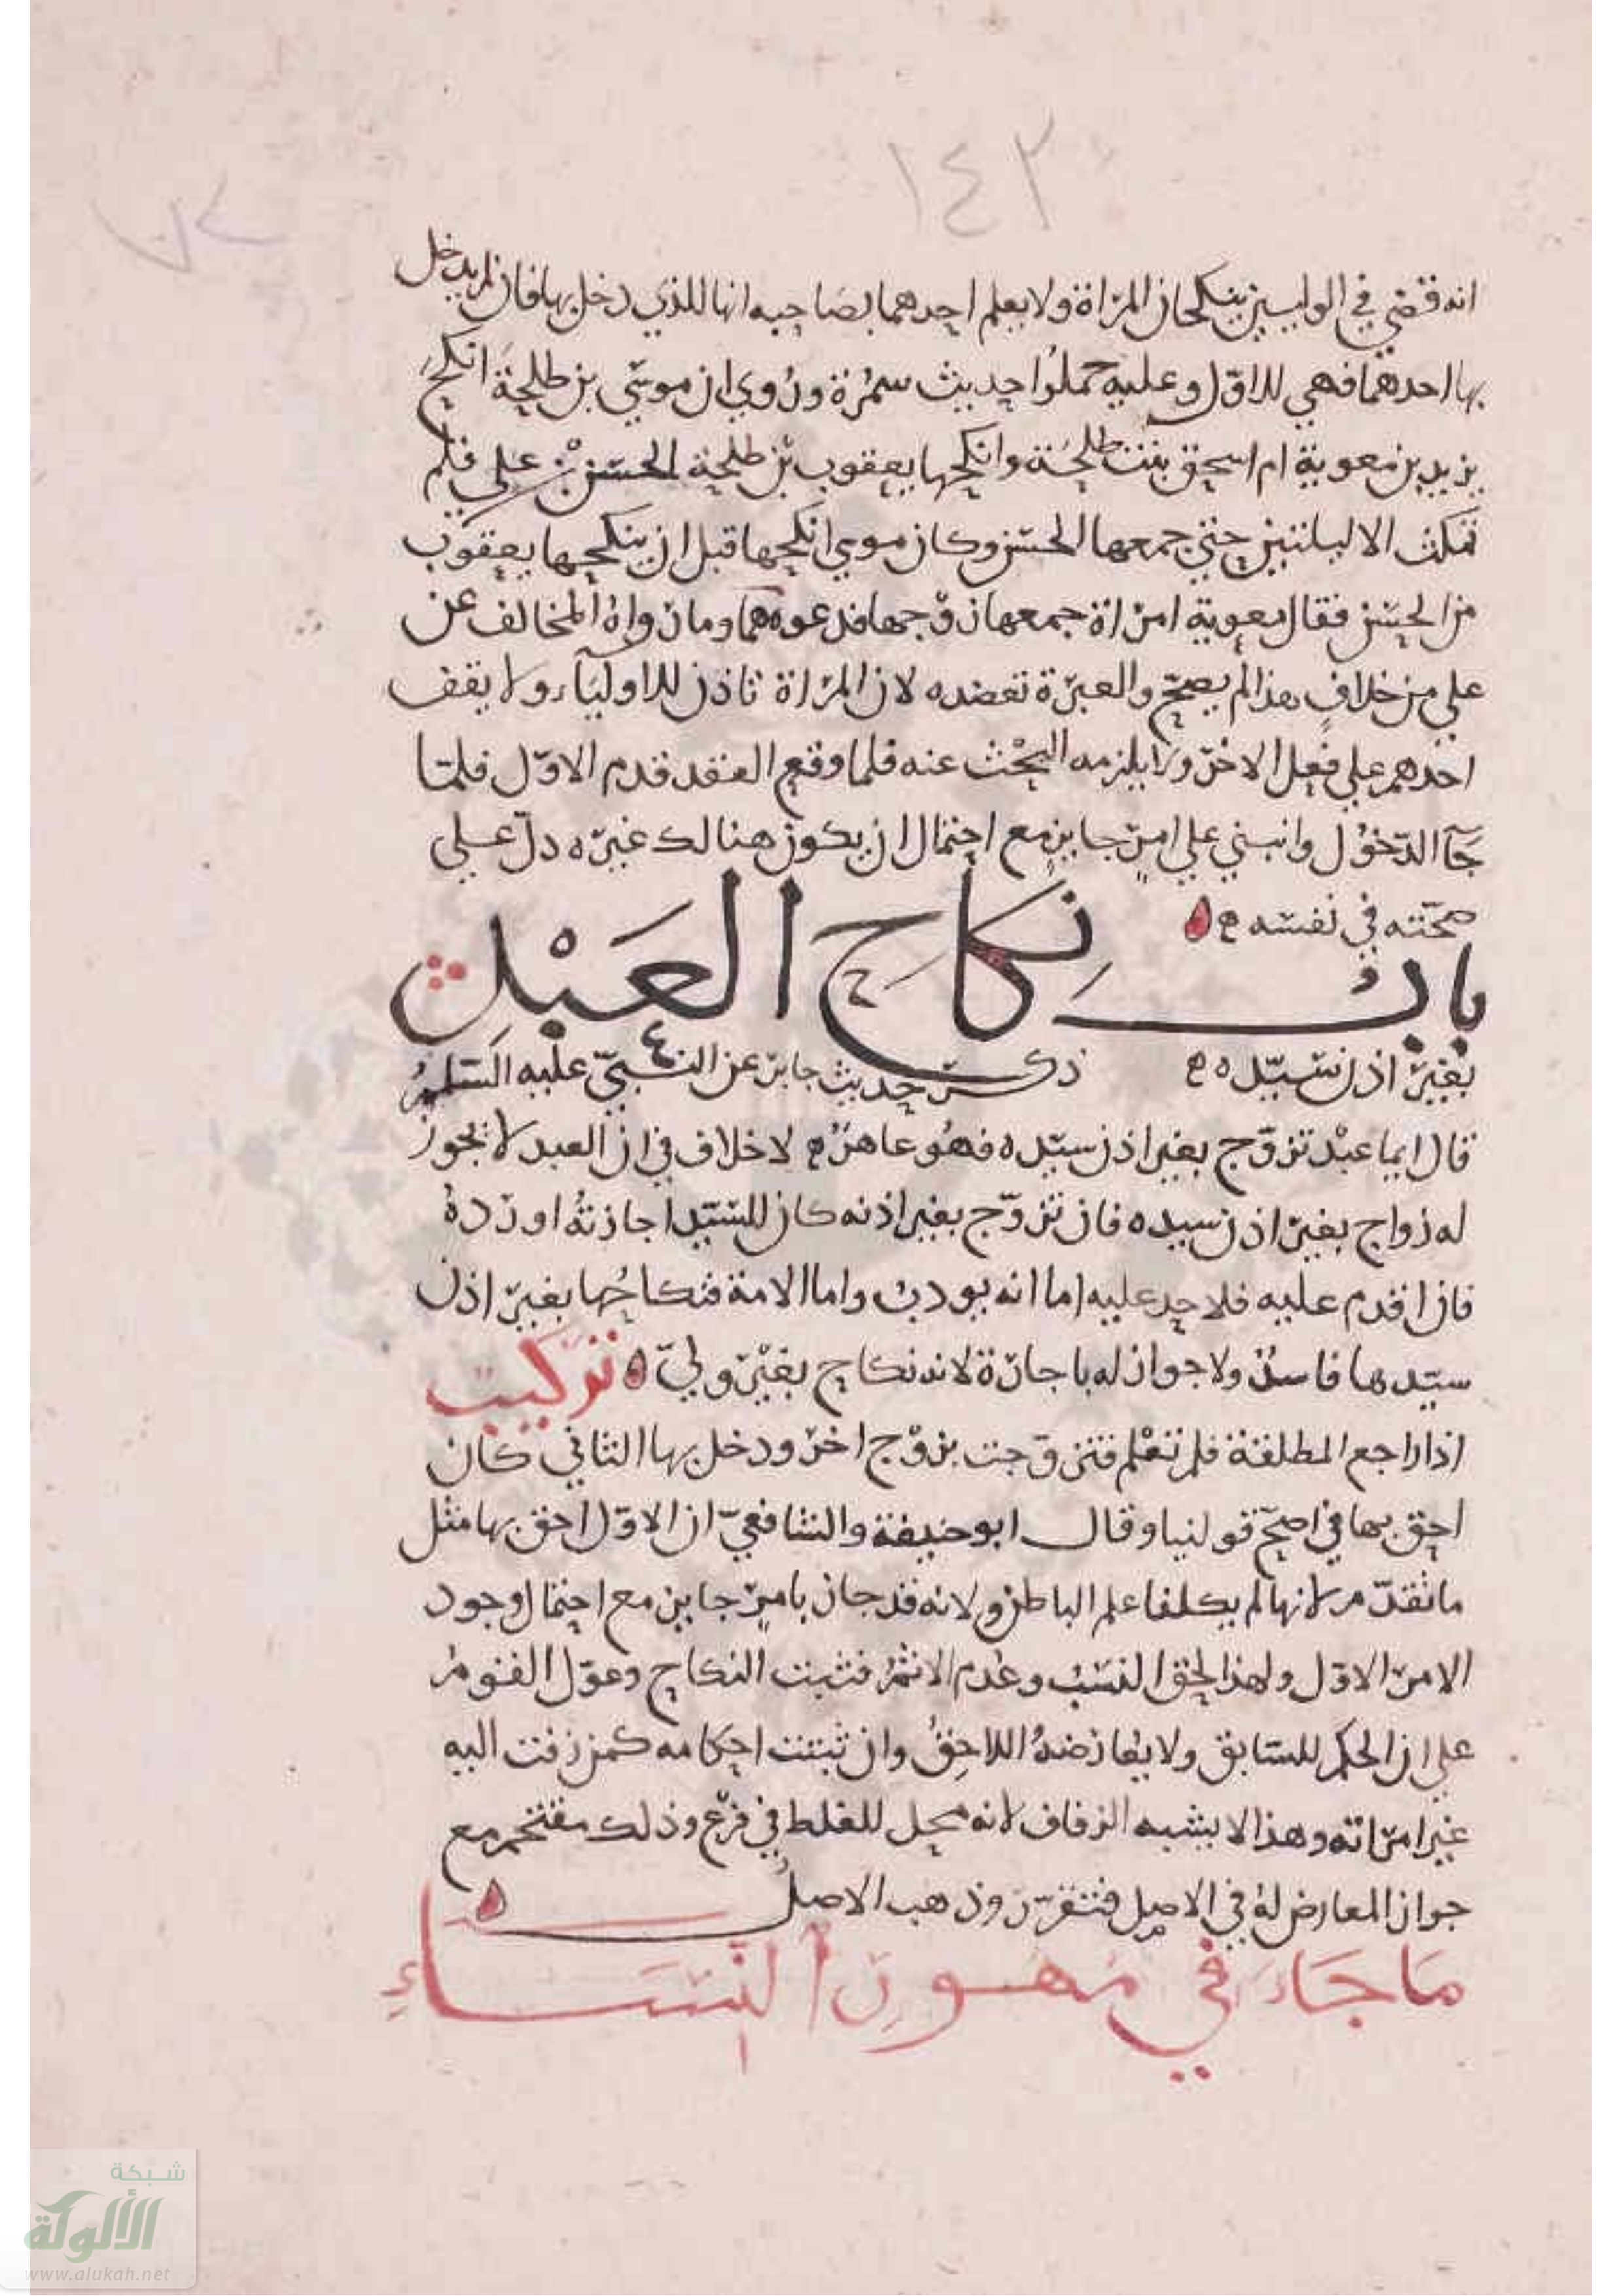 ١٤٣
٧٢
انه قضي في الوليين ينكحان المرأة ولا يعلم احدهما بصاحبه انها للذي دخل بها فان لم يدخل
بها احدهما فهي للاوّل وعليه حملوا حديث سمُرة ورُوي ان موسّي بن طلحة انكحَ
يزيد بن معوية ام اسحق بنت طلحَة وانكحها يعقوب بن طلحة الحسَن بن علي فلم
تمكث الا ليلتين حتي جمعها الحسَن وكان موسي انكحها قبل ان ينكحها يعقوب
من الحسَن فقال معوية امرَاة جمعها زوْجها فدعوهما وما رواهُ المخالف عن
علي من خلاف هذا لم يصحّ والعبرَة تعضده لان المرَاة تاذن للاوليَاء ولا يقف
احدهم علي فعل الاخر ولا يلزمه البحْث عنه فلما وقع العقد قدم الاوّل فلمّا
جَآ الدّخُول وانبني علي امر جايز مع احتمال ان يكون هنالك غيرَه دلّ علي
صحّته في نفسَه
بابُ نكاحِ العَبْدِ
بغير اذن سَيّده ذكر حديث جابر عن النبيّ عليه السَّلم
قال ايما عبْد تزوّج بغير اذن سيّده فهُو عاهرٌ لا خلاف في ان العبد لا يجوز
له زواج بغير اذن سيده فان تزوّج بغير اذنه كان للسَيّد اجازتهُ او ردهُ
فان اقدم عليه فلا حد عليه اما انه يودب واما الامة فنكاحُها بغير اذن
سيّدها فاسدٌ ولا جواز له باجازة لانه نكاح بغيْر وليّ تركيب
اذا راجع المطلقة فلم تعْلم فتزوّجت بزوْج اخر ودخل بها الثاني كان
احق بها في اصحّ قولنيا وقال ابو حنيفة والشافعيّ ان الاوّل احق بها مثل
ما تقدّم لانها لم يكلفا علم الباطن ولانه قد جاز بامر جايز مع احتمال وجود
الامر الاوّل ولهذا لحق النسَبُ وعُدم الاثمُ فثبت النكاح وعوّل القومُ
علي ان الحكم للسَابق ولا يُعارضهُ اللاحقُ وان ثبتت احكامه كمن زفت اليه
غير امرَاته وهذا لا يشبه الزفاف لانه محل للغلط في فرْع وذلك مقتحم مع
جواز المعارض لهُ في الاصل فتقرّر وذهب الاصلُ
مَا جَاءَ في مَهُورِ النّسَاءِ
شبكة
الألوكة
www.alukah.net